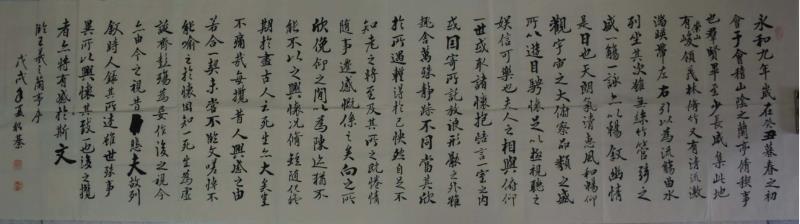 永和九年歲在癸丑暮春之初
會于會稽山陰之蘭亭脩禊事
也羣賢畢至少長咸集此地
有崇山峻領茂林脩竹又有清流激
湍暎帶左右引以為流觴曲水
列坐其次雖無絲竹管弦之
盛一觴一詠亦足以暢敘幽情
是日也天朗氣清惠風和暢仰
觀宇宙之大俯察品類之盛
所以遊目騁懷足以極視聽之
娛信可樂也夫人之相與俯仰
一世或取諸懷抱悟言一室之內
或因寄所託放浪形骸之外雖
趣舍萬殊靜躁不同當其欣
於所遇蹔得於己快然自足不
知老之將至及其所之既惓情
隨事遷感慨係之矣向之所
欣俛仰之閒以為陳迹猶不
能不以之興懷況脩短隨化終
期於盡古人云死生亦大矣豈
不痛哉每攬昔人興感之由
若合一契未嘗不臨文嗟悼不
能喻之於懷固知一死生為虛
誕齊彭殤為妄作後之視今
亦由今之視昔悲夫故列
敘時人錄其所述雖世殊事
異所以興懷其致一也後之攬
者亦將有感於斯文
臨王羲之蘭亭序
戊戌年夏